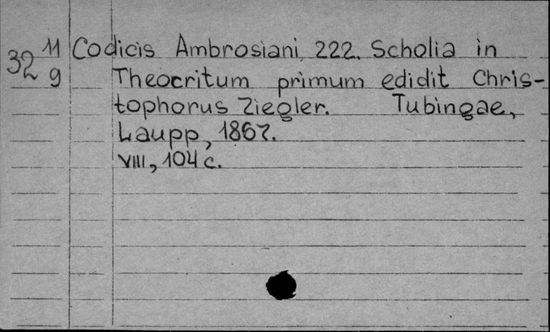 32 11/9 Codicis Ambrosiani 222. Scholia in
Theocritum primum edidit Chris-
tophorus Ziegler. Tubingae,
Laupp, 1867.
VIII, 104 c.